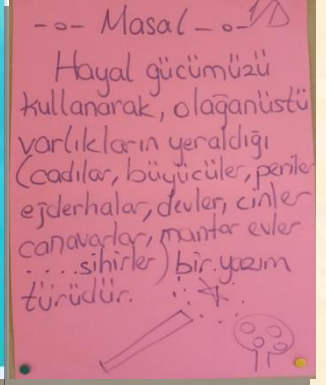 -o- Masal -o-
Hayal gücümüzü
kullanarak, olağanüstü
varlıkların yeraldığı
(cadılar, büyücüler, periler
ejderhalar, devler, cinler
canavarlar, mantar evler
.....sihirler) bir yazım
türüdür.